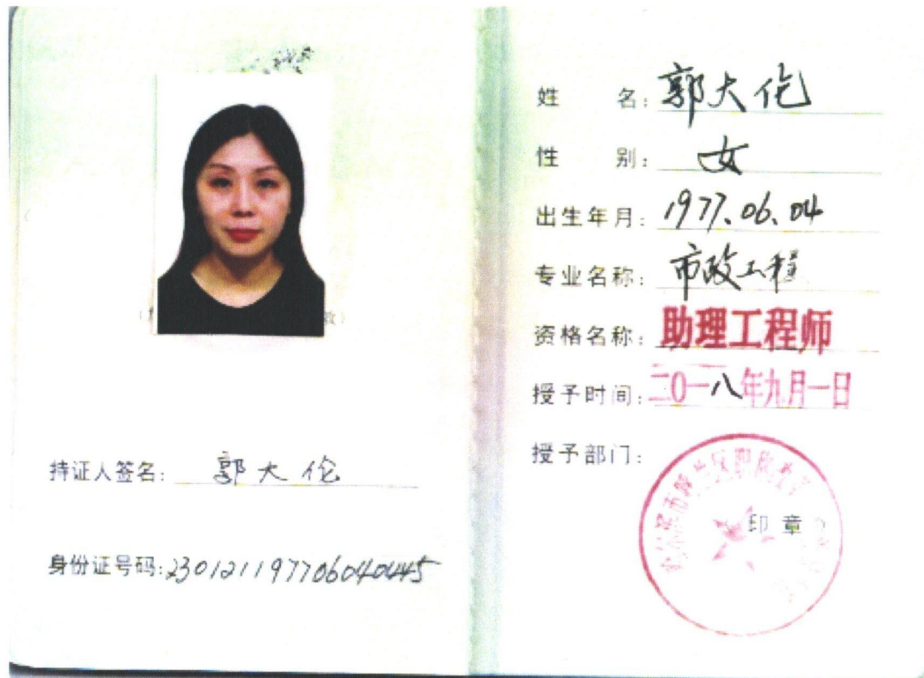 持证人签名: 郭大伦
身份证号码: 230121197706040445
姓 名: 郭大伦
性 别: 女
出生年月: 1977.06.04
专业名称: 市政工程
资格名称: 助理工程师
授予时间: 二0一八年九月一日
授予部门:
印 章